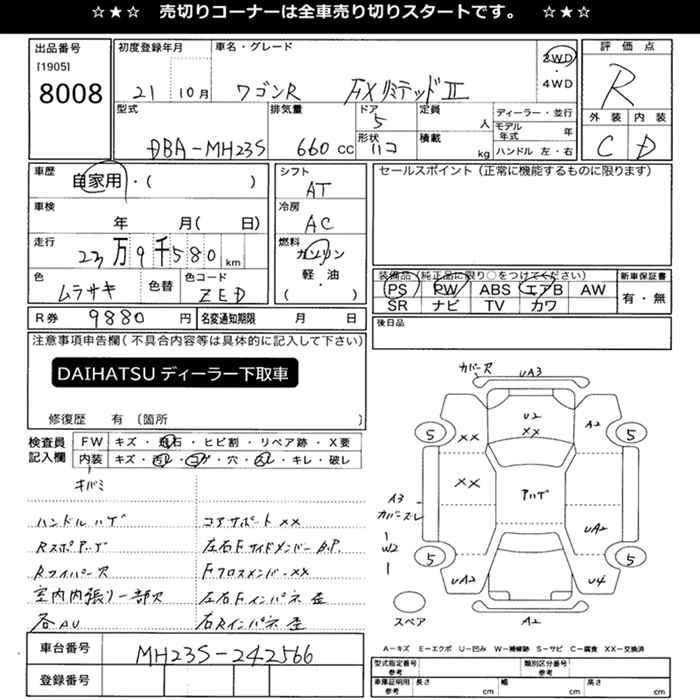 ☆★☆ 売切りコーナーは全車売り切りスタートです。 ☆★☆
出品番号
[1905]
8008
初度登録年月
21 10月
車名・グレード
ワゴンR FXリミテッドⅡ
2WD
・
4WD
評価点
R
外装 内装
C D
型式
DBA-MH23S
排気量
660 cc
ドア
5
形状
ハコ
定員
人
積載
kg
ディーラー・並行
モデル年式 年
ハンドル 左・右
車歴
自家用・( )
車検
年 月( 日)
走行
23万9千580 km
色
ムラサキ
色替
色コード
ZED
シフト
AT
冷房
AC
燃料
ガソリン
軽・油
( )
セールスポイント(正常に機能するものに限ります)
装備品(純正品に限り○をつけてください)
PS PW ABS エアB AW
SR ナビ TV カワ
新車保証書
有・無
R券 9880 円
名変通知期限 月 日
後日品
注意事項申告欄(不具合内容等は具体的に記入して下さい)
DAIHATSU ディーラー下取車
修復歴 有 〔箇所 〕
検査員
記入欄
FW キズ・飛石・ヒビ割・リペア跡・X要
内装 キズ・汚レ・コゲ・穴・スレ・キレ・破レ
キバミ
ハンドルハゲ
コアサポートXX
RスポアゲB
左右Fサイドメンバー B.P.
Rワイパー欠
FクロスメンバーXX
室内内張リ一部欠
左右Fインパネ歪
各AU
右Rインパネ歪
カバー欠
UA3
U2
XX
A2
5
5
XX
XX
アハゲ
A3
カバースレ
W2
UA2
5
5
UA2
U4
A2
スペア
A-キズ E-エクボ U-凹み W-補修跡 S-サビ C-腐食 XX-交換済
車台番号
MH23S-242566
登録番号
型式指定番号
参考
類別区分番号
参考
車庫証明用
参考
長さ cm
幅 cm
高さ cm